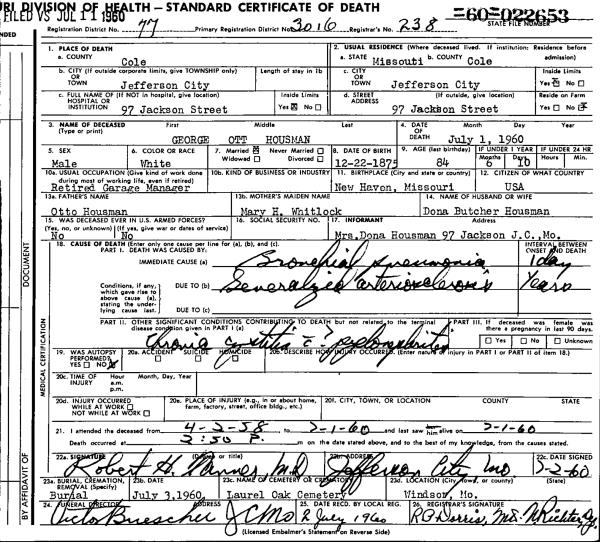 RI DIVISION OF HEALTH—STANDARD CERTIFICATE OF DEATH
FILED VS JUL 11 1960
=60=022653
STATE FILE NUMBER
Registration District No. 77 Primary Registration District No. 3016 Registrar's No. 238
1. PLACE OF DEATH
a. COUNTY Cole
2. USUAL RESIDENCE (Where deceased lived. If institution: Residence before admission)
a. STATE Missouri b. COUNTY Cole
b. CITY (If outside corporate limits, give TOWNSHIP only) OR TOWN Jefferson City
Length of stay in 1b
c. CITY OR TOWN Jefferson City
Inside Limits Yes No
c. FULL NAME OF (If NOT in hospital, give location) HOSPITAL OR INSTITUTION 97 Jackson Street
Inside Limits Yes No
d. STREET ADDRESS (If outside, give location) 97 Jackson Street
Reside on Farm Yes No
3. NAME OF DECEASED (Type or print) First Middle Last
GEORGE OTT HOUSMAN
4. DATE OF DEATH Month Day Year
July 1, 1960
5. SEX Male
6. COLOR OR RACE White
7. Married Never Married Widowed Divorced
8. DATE OF BIRTH 12-22-1875
9. AGE (last birthday) 84
IF UNDER 1 YEAR Months 6 Days 10
IF UNDER 24 HR Hours Min.
10a. USUAL OCCUPATION (Give kind of work done during most of working life, even if retired)
Retired Garage Manager
10b. KIND OF BUSINESS OR INDUSTRY
11. BIRTHPLACE (City and state or country)
New Haven, Missouri
12. CITIZEN OF WHAT COUNTRY
USA
13a. FATHER'S NAME
Otto Housman
13b. MOTHER'S MAIDEN NAME
Mary H. Whitlock
14. NAME OF HUSBAND OR WIFE
Dona Butcher Housman
15. WAS DECEASED EVER IN U.S. ARMED FORCES?
(Yes, no, or unknown) (If yes, give war or dates of service)
No No
16. SOCIAL SECURITY NO.
17. INFORMANT Address
Mrs.Dona Housman 97 Jackson J.C.,Mo.
18. CAUSE OF DEATH (Enter only one cause per line for (a), (b), and (c).
PART I. DEATH WAS CAUSED BY:
INTERVAL BETWEEN ONSET AND DEATH
IMMEDIATE CAUSE (a) Bronchial pneumonia 1 day
Conditions, if any, which gave rise to above cause (a), stating the underlying cause last.
DUE TO (b) Generalized arteriosclerosis Years
DUE TO (c)
PART II. OTHER SIGNIFICANT CONDITIONS CONTRIBUTING TO DEATH but not related to the terminal disease condition given in PART I (a)
Chronic cystitis c̄ ? pyelonephritis
PART III. If deceased was female was there a pregnancy in last 90 days
Yes No Unknown
19. WAS AUTOPSY PERFORMED? YES NO
20a. ACCIDENT SUICIDE HOMICIDE
20b. DESCRIBE HOW INJURY OCCURRED. (Enter nature of injury in PART I or PART II of item 18.)
20c. TIME OF INJURY Hour a.m. p.m. Month, Day, Year
20d. INJURY OCCURRED WHILE AT WORK NOT WHILE AT WORK
20e. PLACE OF INJURY (e.g., in or about home, farm, factory, street, office bldg., etc.)
20f. CITY, TOWN, OR LOCATION COUNTY STATE
21. I attended the deceased from 4-2-58 to 7-1-60 and last saw him alive on 7-1-60
Death occurred at 2:50 P. m on the date stated above, and to the best of my knowledge, from the causes stated.
22a. SIGNATURE (Degree or title)
Robert H. M.D.
22b. ADDRESS
Jefferson City Mo
22c. DATE SIGNED
7-2-60
23a. BURIAL, CREMATION, REMOVAL (Specify)
Burial
23b. DATE
July 3,1960
23c. NAME OF CEMETERY OR CREMATORY
Laurel Oak Cemetery
23d. LOCATION (City, town, or county) (State)
Windsor, Mo.
24. FUNERAL DIRECTOR ADDRESS
Victor Buescher JCMo
25. DATE RECD. BY LOCAL REG.
2 July 1960
26. REGISTRAR'S SIGNATURE
R.P. Dorris, M.D. N. Richter, Dy.
(Licensed Embalmer's Statement on Reverse Side)
NDED
DOCUMENT
MEDICAL CERTIFICATION
BY AFFIDAVIT OF